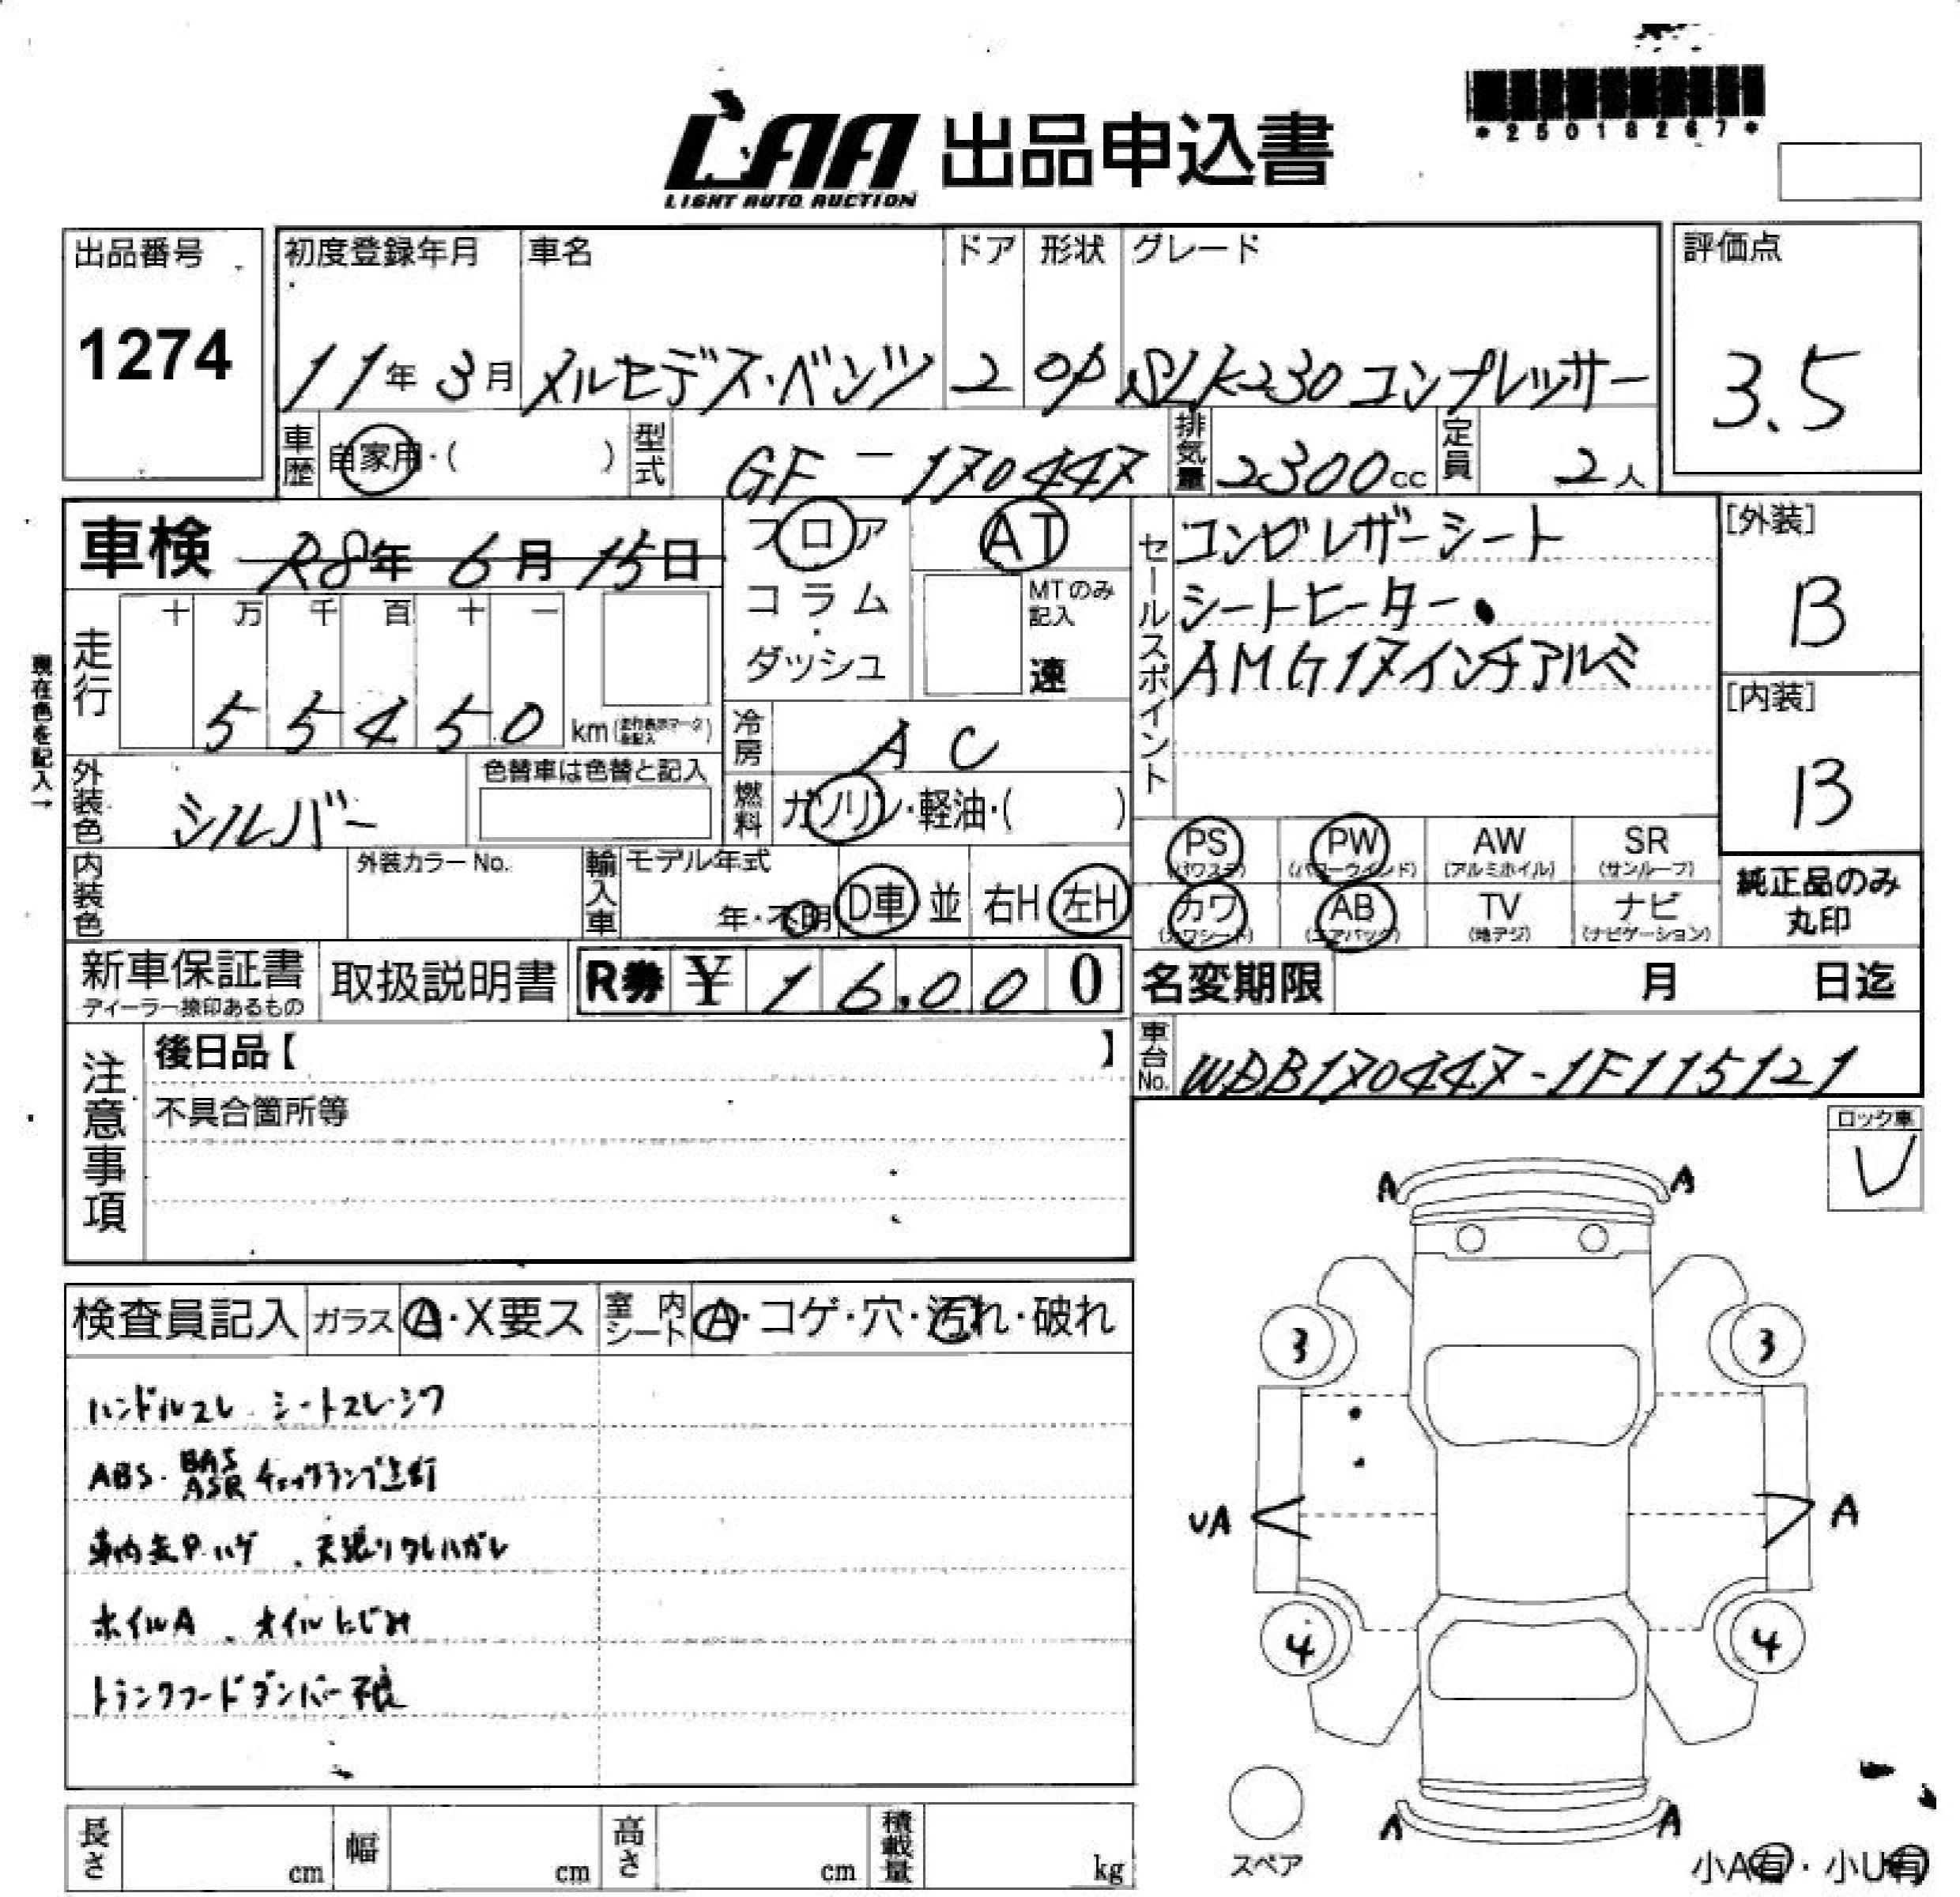 LAA 出品申込書
LIGHT AUTO AUCTION
*25018267*
出品番号
1274
初度登録年月 車名 ドア 形状 グレード 評価点
11年 3月 メルセデス・ベンツ 2 OP SLK230コンプレッサー 3.5
車歴 自家用・( ) 型式 GF-170447 排気量 2300cc 定員 2人
車検 R8年 6月 15日
フロア
コラム
・
ダッシュ
AT
MTのみ記入
速
走行
十 万 千 百 十 一
5 5 4 5 0 km
現在色を記入→
冷房 AC
外装色 シルバー
色替車は色替と記入
燃料 ガソリン・軽油・( )
セールスポイント
コンビレザーシート
シートヒーター
AMG17インチアルミ
[外装]
B
[内装]
B
PS (パワステ) PW (パワーウインド) AW (アルミホイル) SR (サンルーフ)
カワ (カワシート) AB (エアバック) TV (地デジ) ナビ (ナビゲーション)
純正品のみ
丸印
内装色 外装カラーNo. 輸入車 モデル年式
年・不明 D車 並 右H 左H
新車保証書
ディーラー捺印あるもの
取扱説明書
R券 ¥ 1 6,0 0 0
名変期限 月 日迄
車台No. WDB170447-1F115121
注意事項
後日品【 】
不具合箇所等
ロック車
レ
検査員記入 ガラス A・X要ス 室内シート A・コゲ・穴・汚れ・破れ
ハンドルスレ シートスレ・シワ
ABS・BAS ASR チェックランプ点灯
車内 ハゲ、天張りタレハガレ
ホイルA、オイルにじみ
トランクフードダンパー不良
A A
3 3
UA A
4 4
A A
スペア
小A有・小U有
長さ cm 幅 cm 高さ cm 積載量 kg